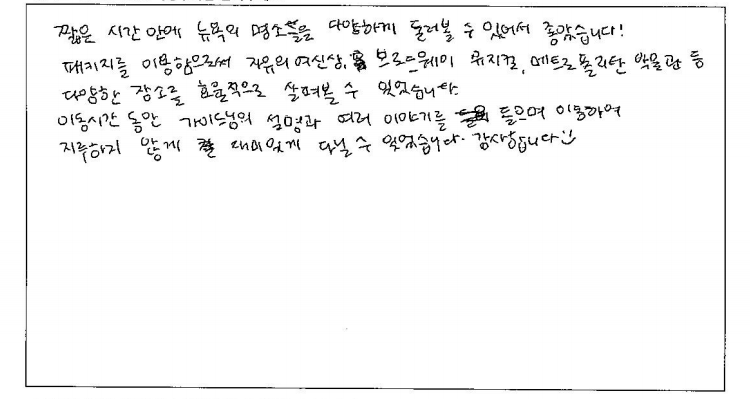 짧은 시간 안에 뉴욕의 명소들을 다양하게 둘러볼 수 있어서 좋았습니다!
패키지를 이용함으로써 자유의 여신상, 브로드웨이 뮤지컬, 메트로폴리탄 박물관 등
다양한 장소를 효율적으로 살펴볼 수 있었습니다.
이동시간 동안 가이드님의 설명과 여러 이야기를 들으며 이동하여
지루하지 않게 재미있게 다닐 수 있었습니다. 감사합니다